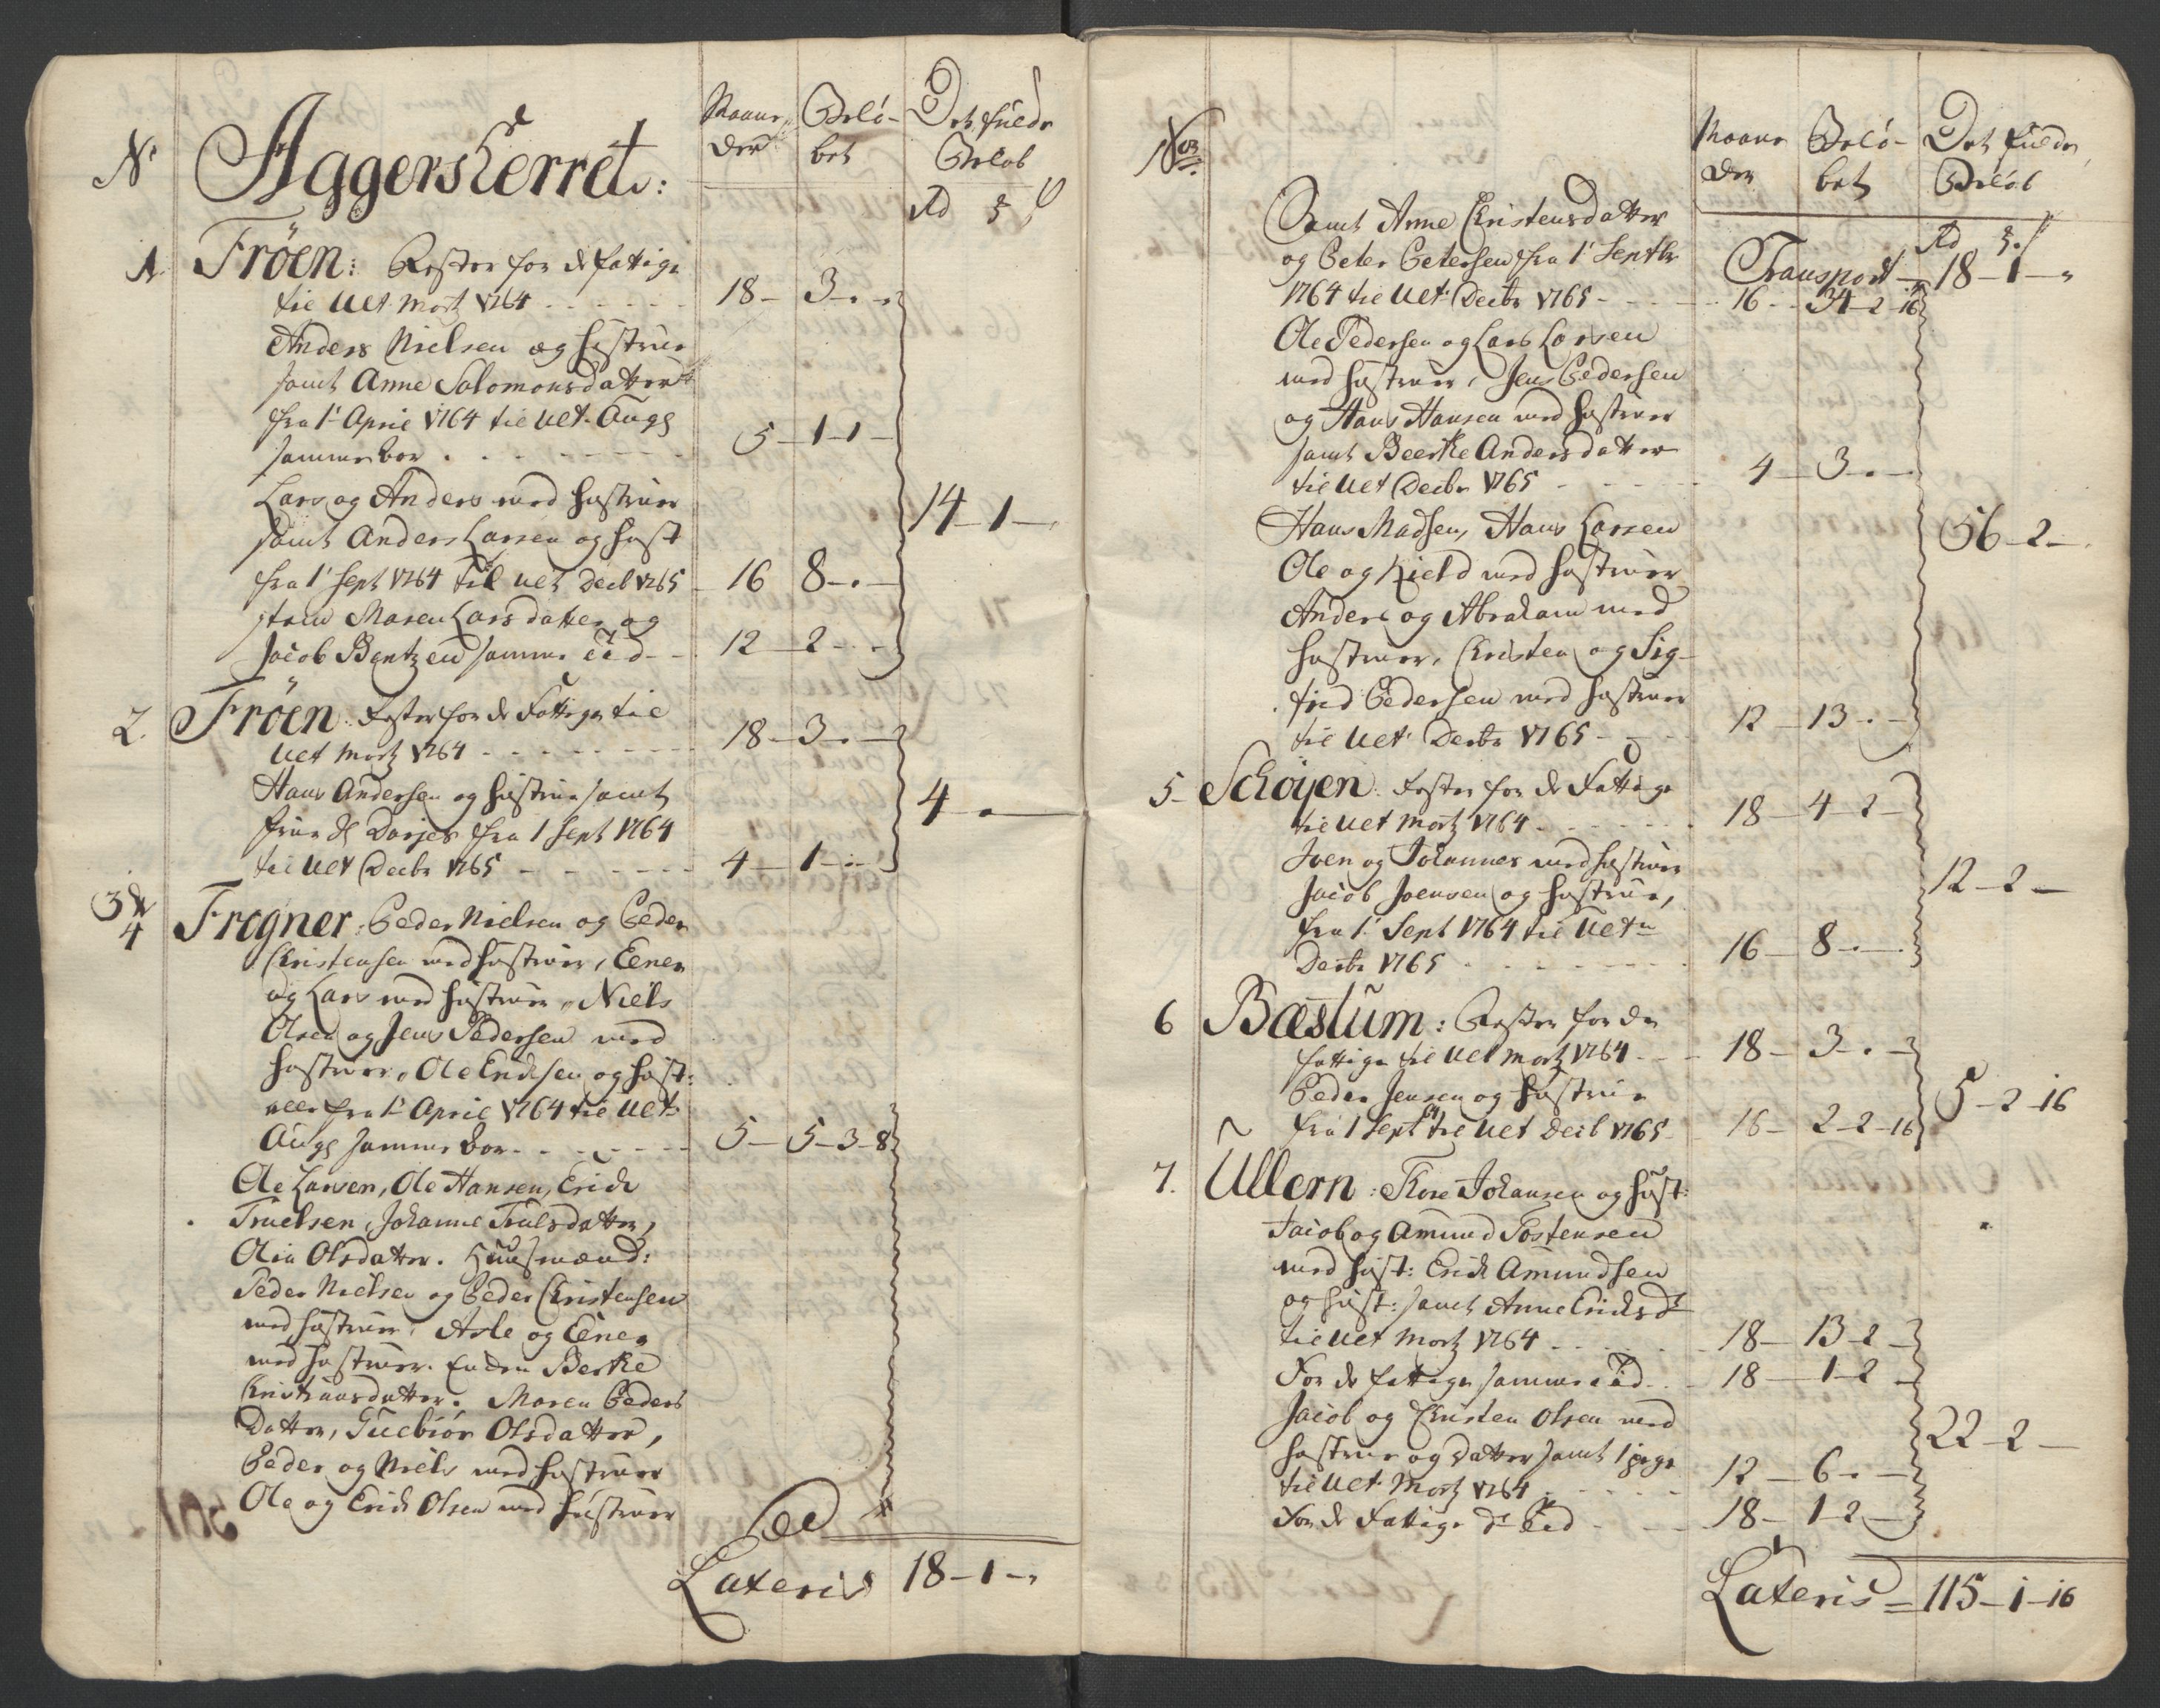 No Aggersherret:
Maane der
Belø-bet
Det fulde Beløb
Rd ß
1. Frøen: Rester for de fattige
til Ult Martz 1764 18 - 3 - " -
Anders Nielsen og Hustrue
samt Anne Solomonsdatter
fra 1 April 1764 til Ult. Aug
samme Aar 5 - 1 - 1 -
Lars og Anders med Hustruer 14 - 1 -
samt Anders Larsen og Hust
fra 1 Sept 1764 til Ult Decb 1765 16 8 - " -
Maren Larsdatter og
Jacob Bentzen samme tid 12 - 2 - " -
2. Frøen. Rester for de Fattige til
Ult Martz 1764 18 - 3 - " -
Hans Andersen og Hustrue samt
Darjes fra 1 Sept 1764 4 - " -
til Ult Decbr 1765 4 - 1 - " -
3 &
4 Frogner: Peder Nielsen og Peder
Christensen med Hustruer, Ener
og Lars med Hustruer, Niels
Olsen og Jens Pedersen med
Hustruer, Ole Erichsen og Hust:
alle fra 1 April 1764 til Ult
Aug samme Aar 5 - 5 - 3 - 8
Ole Larsen, Ole Hansen, Erich
Truelsen, Johanne Truelsdatter,
Olia Olsdatter. Huusmænd:
Peder Nielsen og Peder Christensen
med Hustruer, Asle og Ener
med Hustruer. Enden Berthe
Christiansdatter. Maren Peders
Datter, Guebiør Olsdatter,
Peder og Niels med Hustruer
Ole og Erich Olsen med Hustruer
Lateris 18 - 1 - "
Nor
Maane der
Belø-bet
Det fulde Beløb
Rd ß
Samt Anne Christensdatter
og Peter Petersen fra 1 Septbr Transport - 18 - 1 - "
1764 til Ult. Decbr 1765 16 - 34 - 2 - 16
Ole Pedersen og Lars Larsen
med Hustruer, Jens Pedersen
og Hans Hansen med Hustruer
samt Beerthe Andersdatter
til Ult Decbr 1765 4 - 3 - " -
Hans Madsen, Hans Larsen 56 - 2 -
Ole og Kield med Hustruer
Anders og Abraham med
Hustruer, Christen og Sig-
frid Pedersen med Hustruer
til Ult Decbr 1765 12 - 13 - " -
5 - Schøyen. Rester for de Fattige
til Ult Martz 1764 18 - 4 - 2 -
Joen og Johannes med Hustruer
Jacob Joensen og Hustrue, 12 - 2 -
fra 1 Sept 1764 til Ult
Decbr 1765 16 - 8 - " -
6 Bæstum: Rester for de
fattige til Ult Martz 1764 18 - 3 - " -
Peder Jensen og Hustrue 5 - 2 - 16
fra 1 Sept 64 til Ult Decb 1765 16 - 2 - 2 - 16
7. Ullern: Thore Johansen og Hust:
Jacob og Amund Tostensen
med Hust: Erich Amundsen
og Hust: samt Anne Erichsdr
til Ult Martz 1764 18 - 13 - 2
For de fattige samme tid 18 - 1 - 2
Jacob og Christen Olsen med
Hustrue og Datter samt 1 pige 22 - 2 -
til Ult Martz 1764 12 - 6 - " -
For de Fattige do tid 18 - 1 - 2
Lateris = 115 - 1 - 16